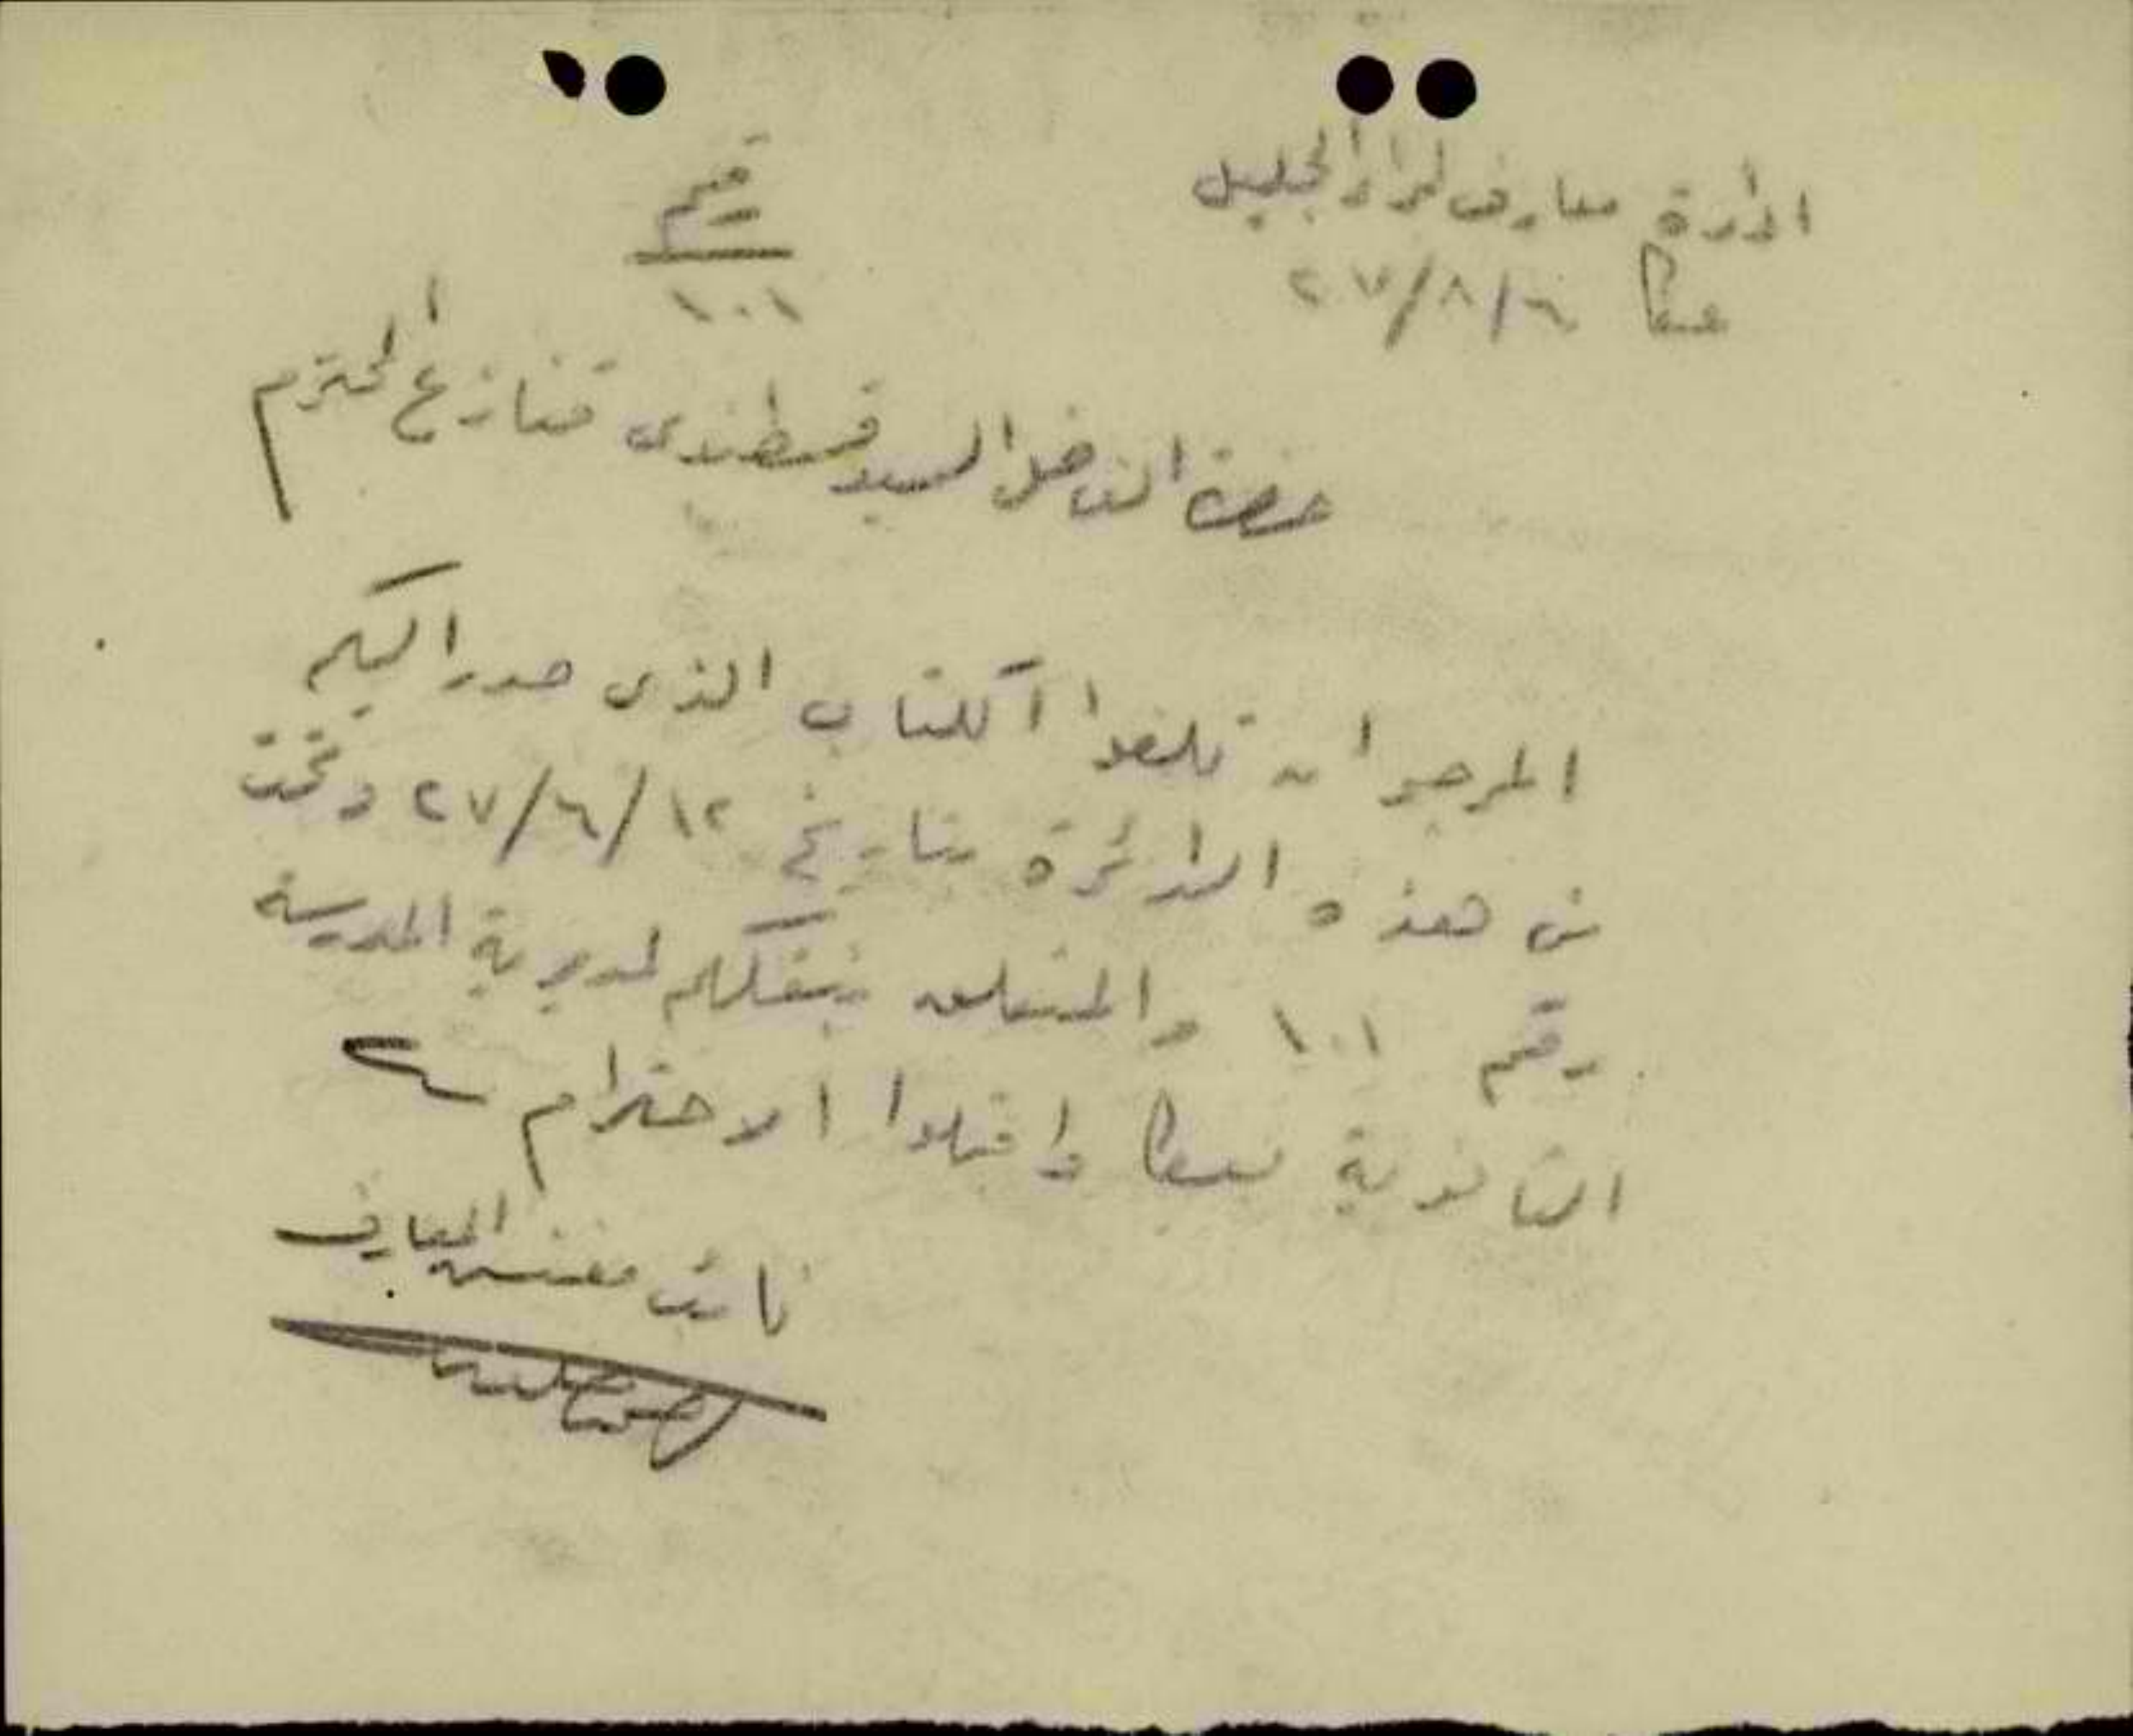 ادارة معارف لواء الجليل
عكا ٢٧/٨/٦
رقم
١٠١
حضرة الفاضل السيد قسطندى قنازع المحترم
المرجو ان تلغوا الكتاب الذى صدر اليكم
من هذه الدائرة بتاريخ ٢٧/٦/١٢ وتحت
رقم ١٠١ والمتعلق بنقلكم لمديرية المدرسة
الثانوية بعكا واقبلوا الاحترام
نائب مفتش المعارف